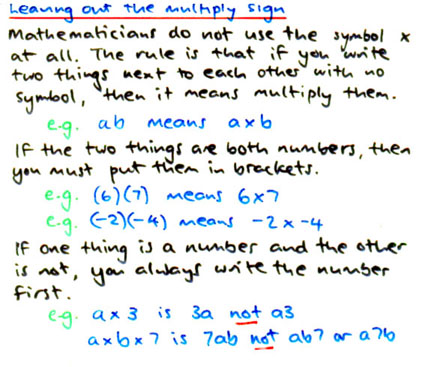 Leaving out the multiply sign
Mathematicians do not use the symbol x
at all. The rule is that if you write
two things next to each other with no
symbol, then it means multiply them.
e.g. ab means a x b
If the two things are both numbers, then
you must put them in brackets.
e.g. (6)(7) means 6x7
e.g. (-2)(-4) means -2 x -4
If one thing is a number and the other
is not, you always write the number
first.
e.g. a x 3 is 3a not a3
a x b x 7 is 7ab not ab7 or a7b